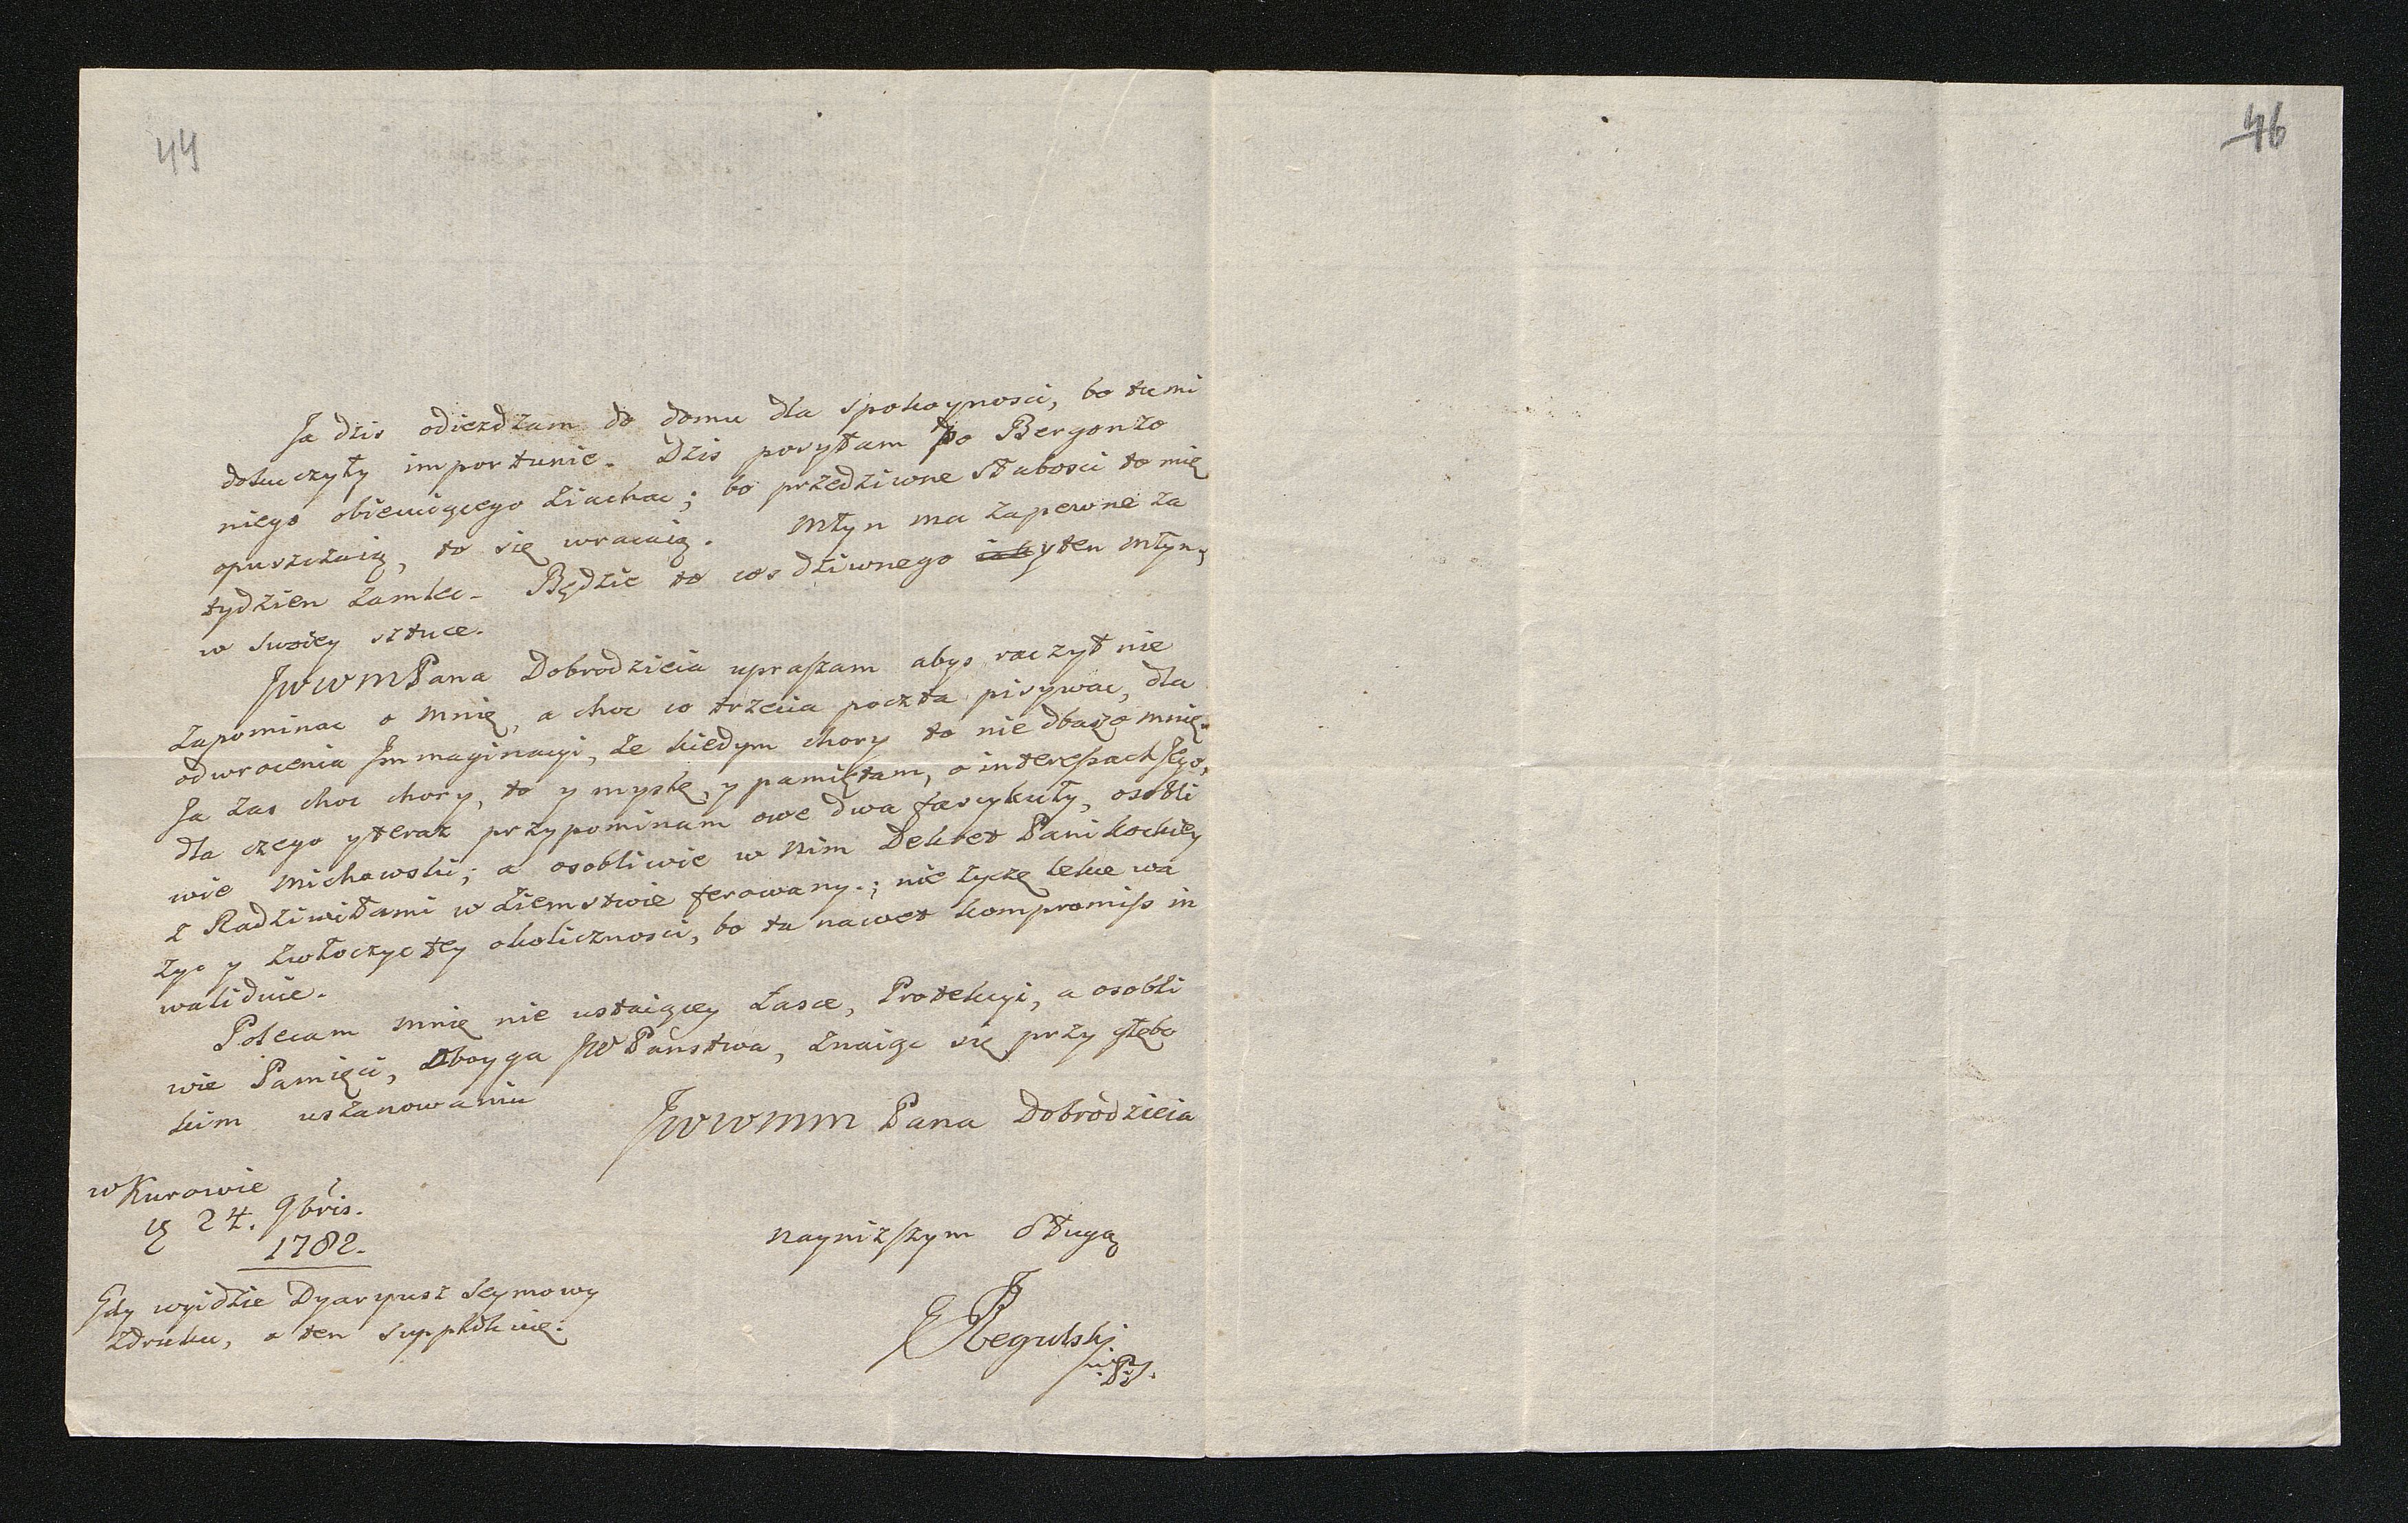 44
46
Ja dzis odiezdzam do domu dla spokoynosci, bo tu mi
dokuczyły importunie. Dzis posyłam po Bergonzo
niego obiecuiącego ziachac; bo przedziwne słabosci to mię
opuszczaią, to się wracaią. Młyn ma zapewne za
tydzien zamkc. Będzie to cos dziwnego y ten Młyn,
w swoiey sztuce.
JWWMPana Dobrodzieia upraszam abys raczył nie
zapominac o mnię, a choc co trzecia poczta pisywac, dla
odwrocenia Jmmaginacyi, ze kiedym chory to nie dbaią o mnię.
Ja zas choc chory, to y myslę, y pamiętam, o interessach Jego,
dla czego y teraz przypominam owe dwa fascykuły, osobli
wie Michowski; a osobliwie w nim Dekret Pani kockiey
z Radziwiłami w Ziemstwie ferowany.; nie zyczę lekce wa
zyc y zwłoczyc tey okolicznosci, bo tu nawet kompromiss in
waliduie.
Polecam mnię nie ustaiącey Łasce, Protekcyi, a osobli
wie Pamięci, Oboyga JWPaństwa, znaiąc się przy głębo
kim uszanowaniu
JWWMM Pana Dobrodzieia
w Kurowie
24. 9bris.
1782.
nayniższym Sługą
Gdy wyidzie Dyaryusz Seymowy
zdruku, o ten supplikuię.
Regulski